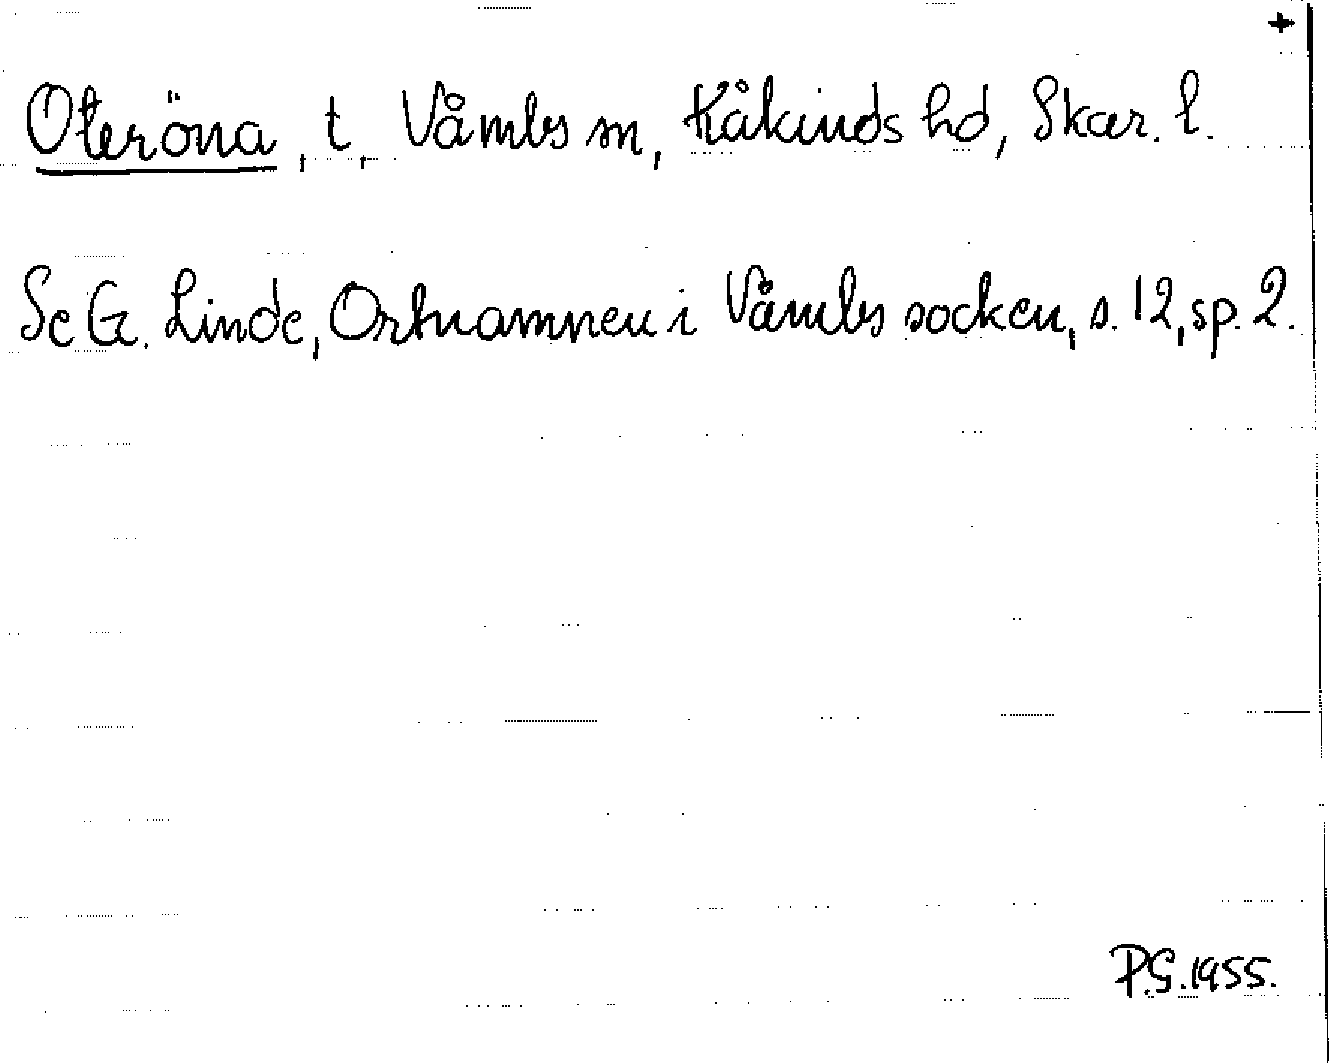 +
Oteröna, t, Våmbs sn, Kåkinds hd, Skar. l.
Se G. Linde, Ortnamnen i Våmbs socken, s. 12, sp. 2.
P.G. 1955.